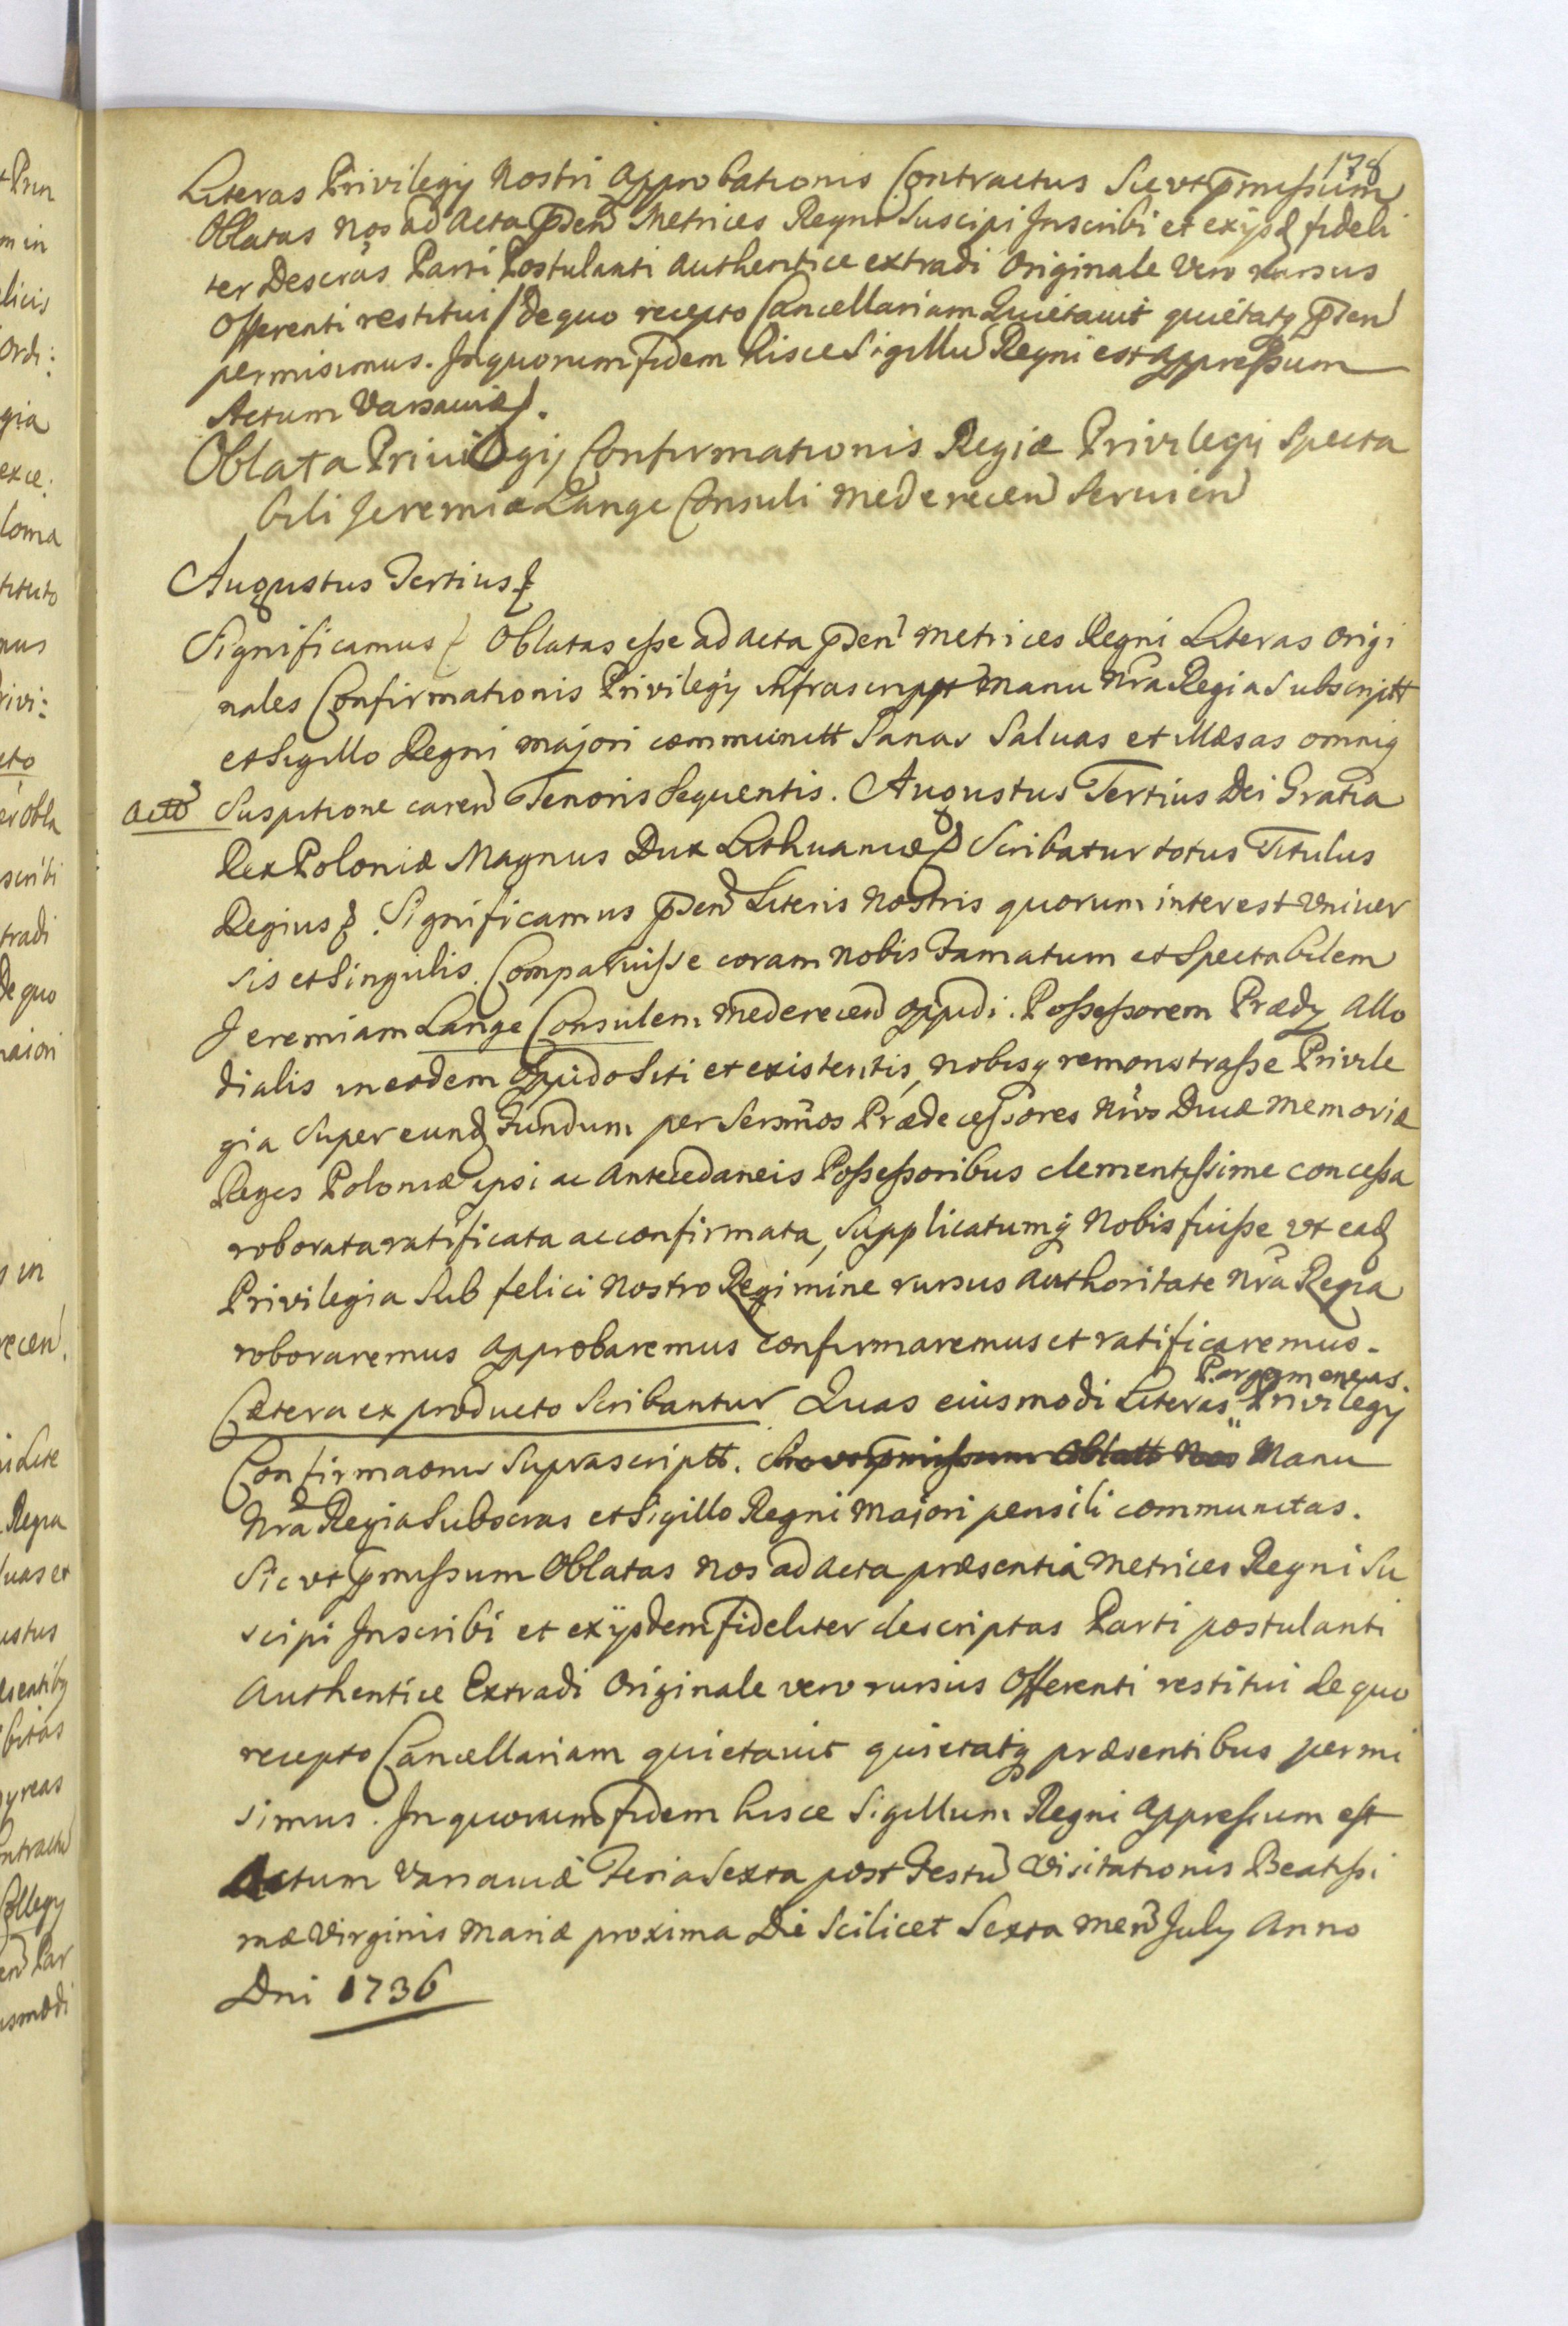 178
Literas Privilegij Nostri Approbationis Contractus Sic ut p̄missum
Oblatas Nos ad Acta p̄sen̄ Metrices Regni Suscipi Inscribi et ex ijsd fideli
ter Descr̄as Parti Postulanti Authentice extradi Originale Vero rursus
Offerenti restitui / de quo recepto Cancellariam Quietavit quietatq p̄sen̄
permisimus. In quorum fidem hisce Sigillū Regni est Appressum
Actum Varsaviæ
Oblata Privilegij Confirmationis Regiæ Privilegij Specta
bili Jeremiæ Lange Consuli Mederecen̄ Servien̄
Augustus Tertius
Significamus Oblatas esse ad Acta p̄sen̄ Metrices Regni Literas Origi
nales Confirmationis Privilegij infrascript Manu Nr̄a Regia Subscriptt
et Sigillo Regni majori communitt Sanas Salvas et Illæsas omniq
Actō Suspitione caren̄ Tenoris Sequentis. Augustus Tertius Dei Gratia
Rex Poloniæ Magnus Dux Lithuaniæ Scribatur totus Titulus
Regius. Significamus p̄sen̄ Literis Nostris quorum interest Univer
sis et Singulis. Comparuisse coram Nobis Famatum et Spectabilem
Jeremiam Lange Consulem Mederecen̄ Oppidi. Possessorem Prædij Allo
dialis in eodem Oppido Siti et existentis, Nobisq remonstrasse Privile
gia Super eund Fundum per Serm̄os Prædecessores Nr̄os Divæ Memoriæ
Reges Poloniæ ipsi ac Antecedaneis Possessoribus clementissime concessa
roborata ratificata ac confirmata, Supplicatumq Nobis fuisse ut ead
Privilegia Sub felici Nostro Regimine rursus Authoritate Nr̄a Regia
roboraremus Approbaremus confirmaremus et ratificaremus.
Cætera ex producto Scribantur Quas eiusmodi Literas Pargameneas Privilegij
Confirmaōnis Suprascriptt. Sic ut p̄missum Oblatt Nos Manu
Nr̄a Regia Subscr̄as et Sigillo Regni Majori pensili communitas.
Sic ut p̄missum Oblatas Nos ad Acta præsentia Metrices Regni Su
scipi Inscribi et ex ijsdem fideliter descriptas Parti postulanti
Authentice Extradi Originale vero rursus Offerenti restitui de quo
recepto Cancellariam quietavit quietatq præsentibus permi
simus. In quorum fidem hisce Sigillum Regni Appressum est
Actum Varsaviæ Feria Sexta post Festū Visitationis Beatissi
mæ Virginis Mariæ proxima Die Scilicet Sexta Men̄ July Anno
Dni 1736